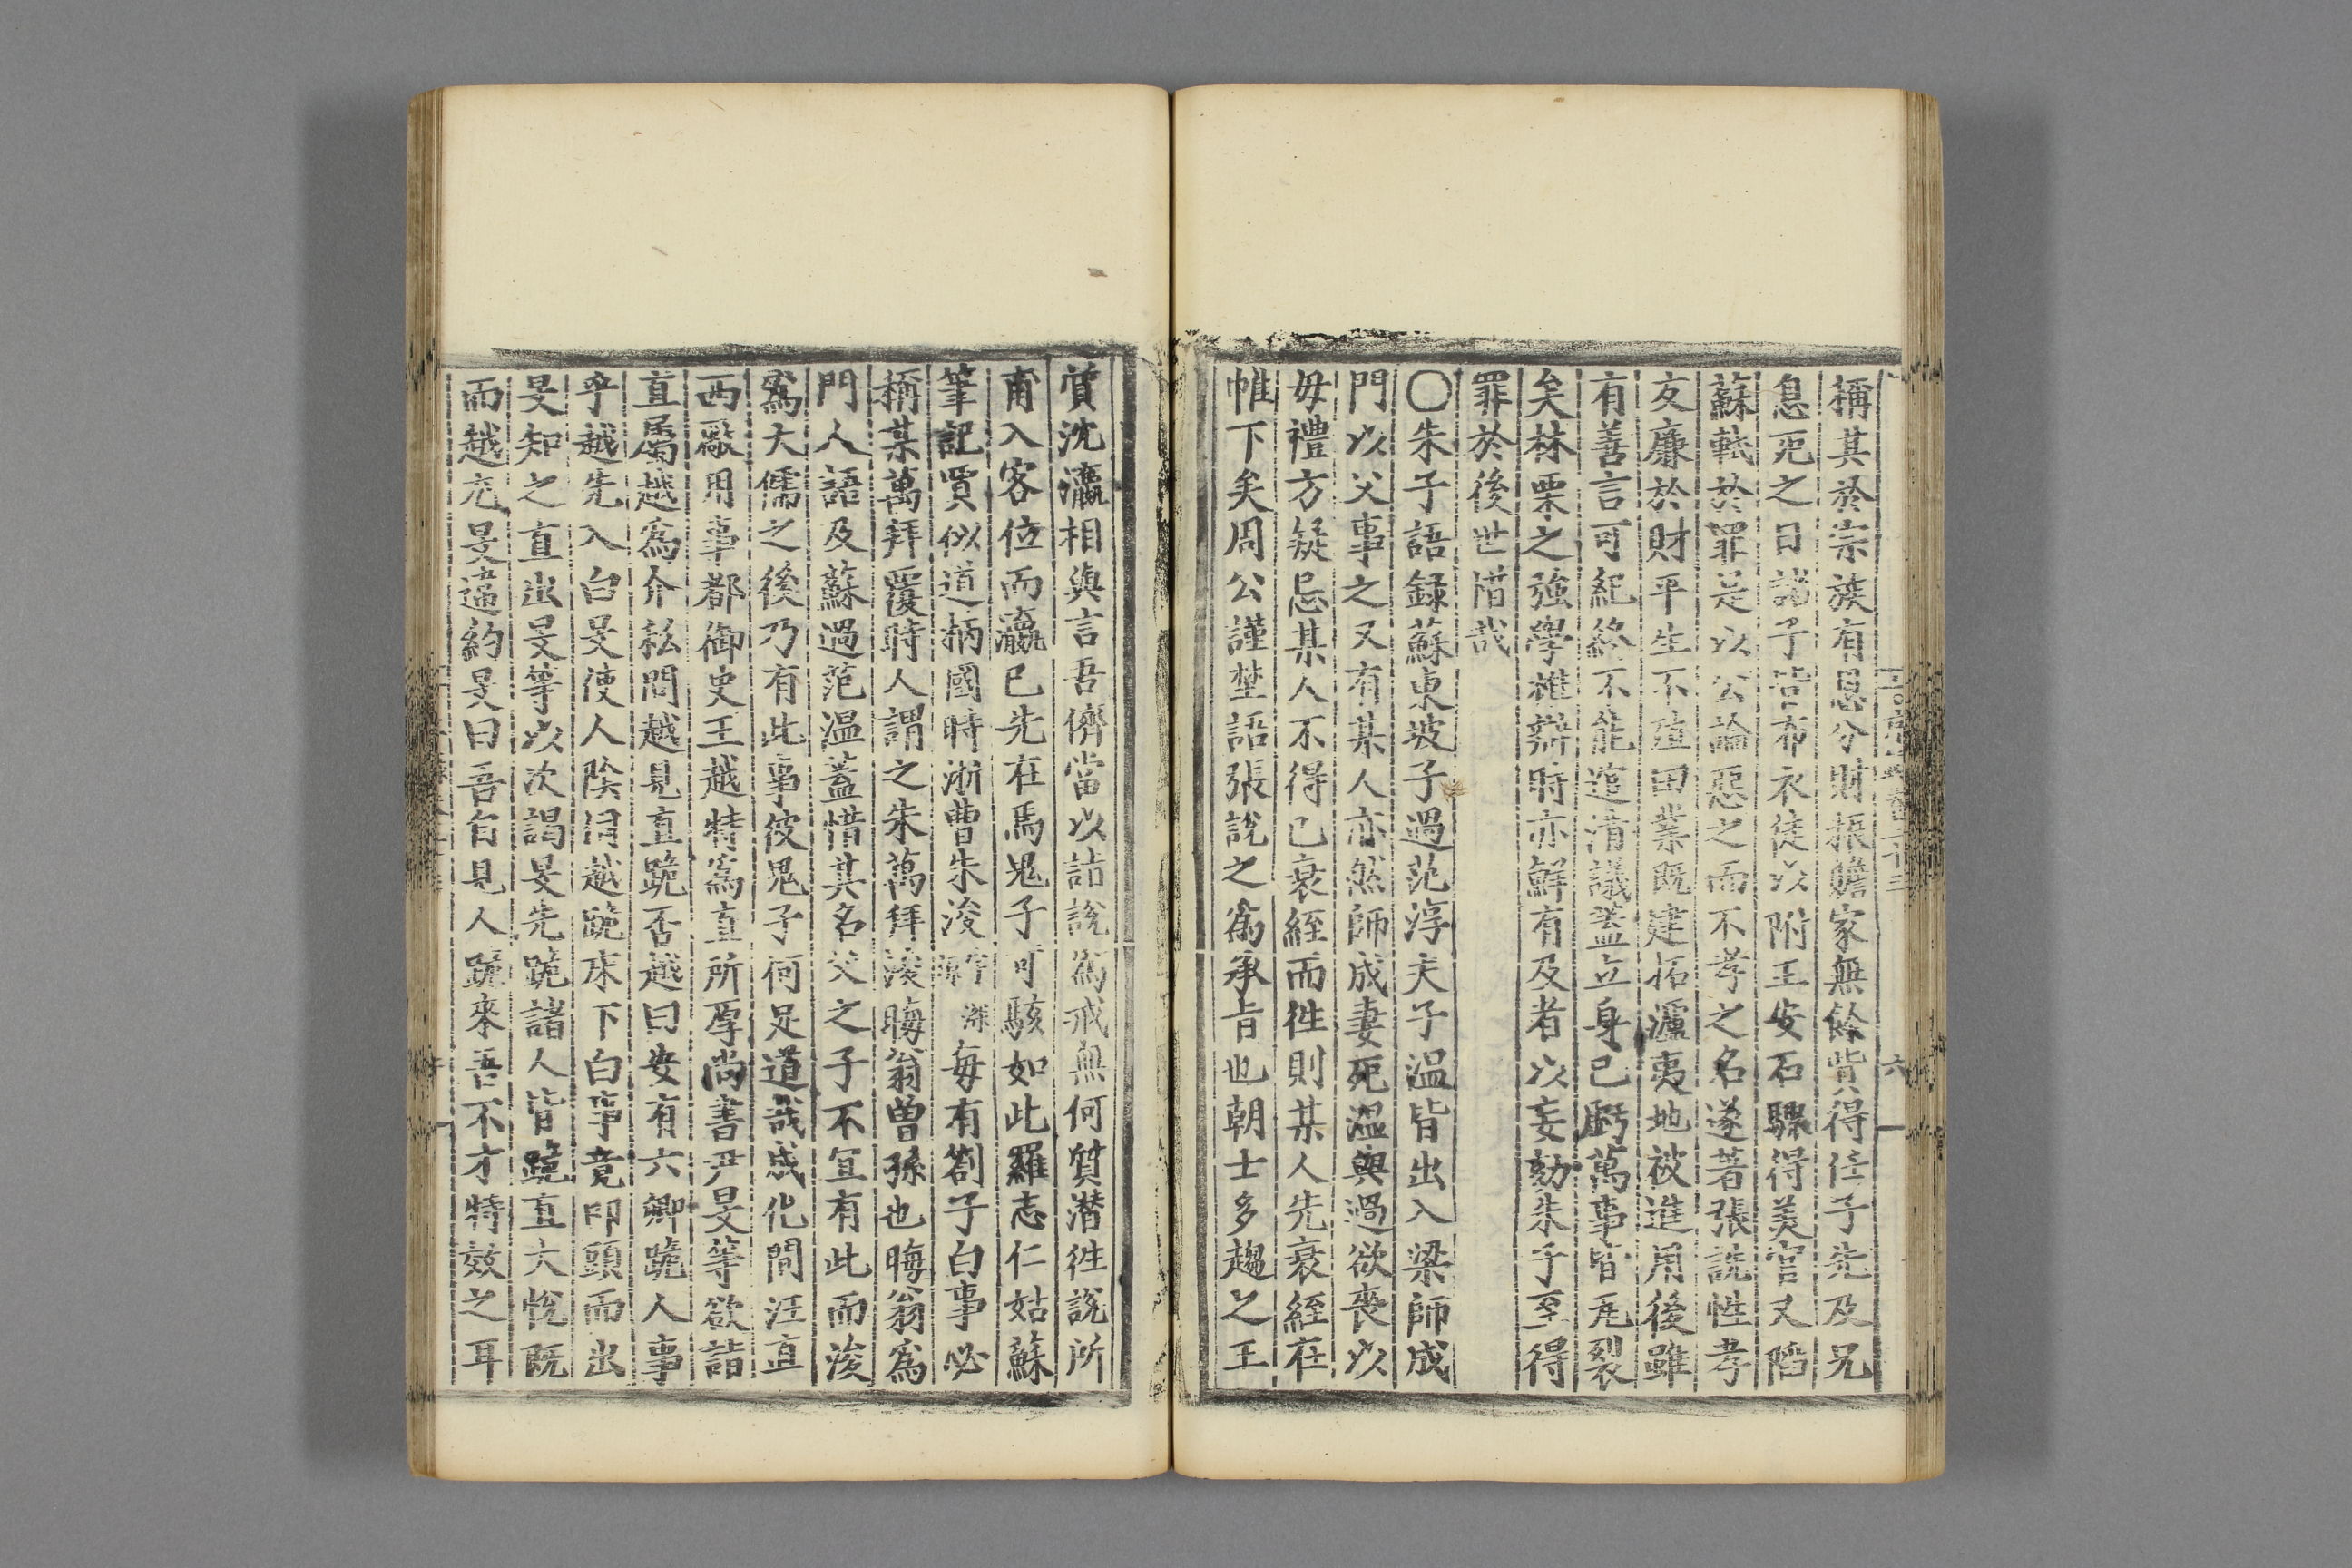 稱其於宗族有恩分財振贍家無餘貲得任子先及兄
息死之日諸子皆布衣徒以附王安石驟得美官又陷
蘇軾於罪是以公論惡之而不孝之名遂著張詵性孝
友廉於財平生不殖田業旣建拓瀘夷地被進用後雖
有善言可紀終不能逭清議蓋立身己虧萬事皆瓦裂
矣林栗之強學雄辯時亦鮮有及者以妄劾朱子至得
罪於後世惜哉
〇朱子語録蘇東坡子過范淳夫子温皆出入梁師成
門以父事之又有某人亦然師成妻死温與過欲喪以
毋禮方疑忌某人不得已衰絰而徃則某人先衰絰在
帷下矣周公謹埜語張說之爲承旨也朝士多趨之王
質沈瀛相與言吾儕當以詣說爲戒無何質潜徃說所
甫入客位而瀛已先在焉鬼子可駭如此羅志仁姑蘇
筆記賈似道柄國時浙曹朱浚字深源每有劄子白事必
稱某萬拜覆時人謂之朱萬拜浚晦翁曾孫也晦翁爲
門人語及蘇過范温蓋惜其名父之子不宜有此而浚
爲大儒之後乃有此事彼鬼子何足道哉成化間汪直
西厰用事都御史王越特爲直所厚尚書尹旻等欲詣
直屬越爲介私問越見直跪否越曰安有六卿跪人事
乎越先入白旻使人陰伺越跪床下白事竟叩頭而出
旻知之直出旻等以次謁旻先跪諸人皆跪直大悅旣
而越尤旻違約旻曰吾自見人跪來吾不才特效之耳